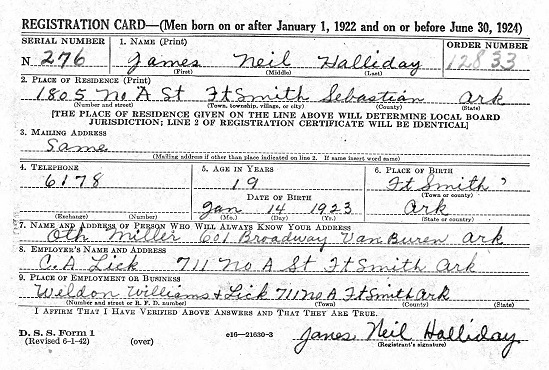 REGISTRATION CARD—(Men born on or after January 1, 1922 and on or before June 30, 1924)
SERIAL NUMBER 1. NAME (Print) ORDER NUMBER
N 276 James Neil Halliday 12833
(First) (Middle) (Last)
2. PLACE OF RESIDENCE (Print)
1805 No A St Ft Smith Sebastian Ark
(Number and street) (Town, township, village, or city) (County) (State)
[THE PLACE OF RESIDENCE GIVEN ON THE LINE ABOVE WILL DETERMINE LOCAL BOARD
JURISDICTION; LINE 2 OF REGISTRATION CERTIFICATE WILL BE IDENTICAL]
3. MAILING ADDRESS
Same
(Mailing address if other than place indicated on line 2. If same insert word same)
4. TELEPHONE 5. AGE IN YEARS 6. PLACE OF BIRTH
6178 19 Ft Smith
(Town or county)
DATE OF BIRTH
Jan 14 1923 Ark
(Exchange) (Number) (Mo.) (Day) (Yr.) (State or country)
7. NAME AND ADDRESS OF PERSON WHO WILL ALWAYS KNOW YOUR ADDRESS
Oth Miller 601 Broadway Van Buren Ark
8. EMPLOYER'S NAME AND ADDRESS
C. A Lick 711 No A St Ft Smith Ark
9. PLACE OF EMPLOYMENT OR BUSINESS
Weldon Williams & Lick 711 No A Ft Smith Ark
(Number and street or R. F. D. number) (Town) (County) (State)
I AFFIRM THAT I HAVE VERIFIED ABOVE ANSWERS AND THAT THEY ARE TRUE.
D. S. S. Form 1
(Revised 6-1-42) (over) c16—21630-3 James Neil Halliday
(Registrant's signature)